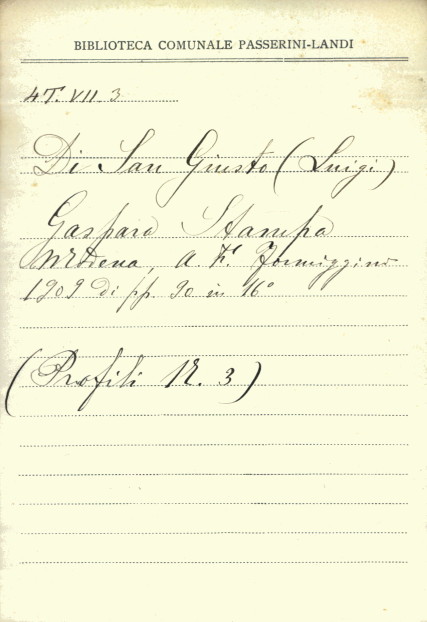 BIBLIOTECA COMUNALE PASSERINI-LANDI
4T. VII. 3
Di San Giusto (Luigi)
Gaspara Stampa
Modena, A. F. Formiggini
1909 di pp. 90 in 16°
(Profili N. 3)